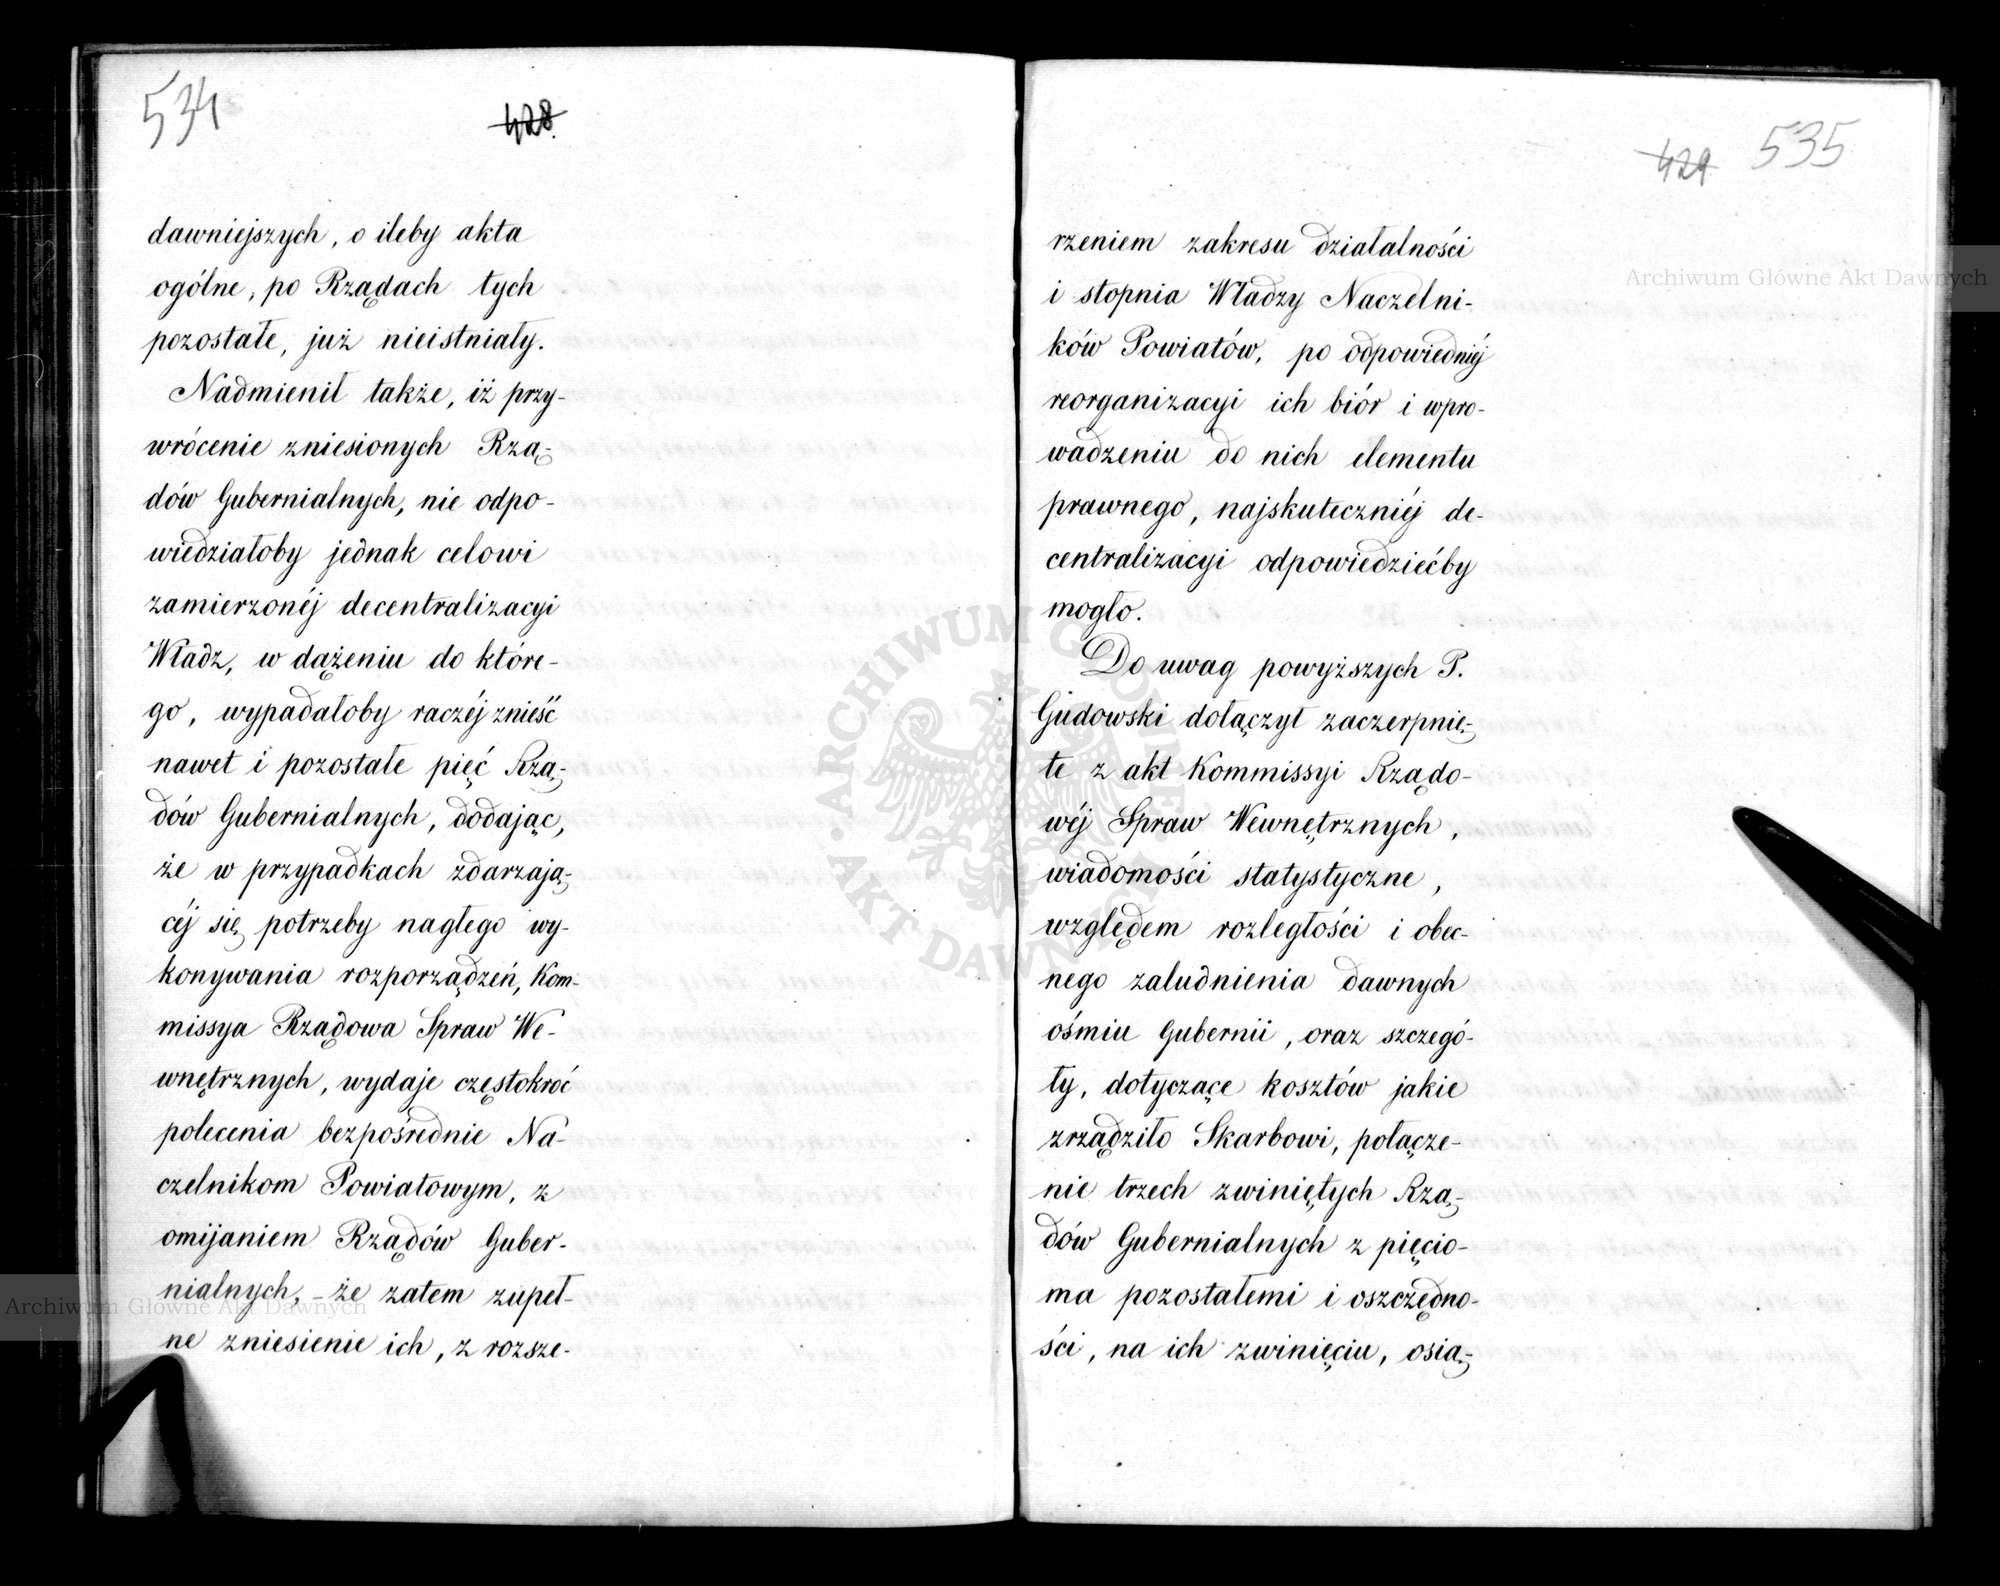 534
428.
dawniejszych, o ileby akta
ogólne, po Rządach tych
pozostałe, już nieistniały.
Nadmienił także, iż przy-
wrócenie zniesionych Rzą-
dów Gubernialnych, nie odpo-
wiedziałoby jednak celowi
zamierzonéj decentralizacyi
Władz, w dążeniu do które-
go, wypadałoby raczéj znieść
nawet i pozostałe pięć Rzą-
dów Gubernialnych, dodając,
że w przypadkach zdarzają-
céj się potrzeby nagłego wy-
konywania rozporządzeń, Kom-
missya Rządowa Spraw We-
wnętrznych, wydaje częstokroć
polecenia bezpośrednie Na-
czelnikom Powiatowym, z
omijaniem Rządów Guber-
nialnych, - że zatem zupeł-
ne zniesienie ich, z rozsze-
429 535
rzeniem zakresu działalności
i stopnia Władzy Naczelni-
ków Powiatów, po odpowiedniéj
reorganizacyi ich biór i wpro-
wadzeniu do nich elementu
prawnego, najskuteczniéj de-
centralizacyi odpowiedziećby
mogło.
Do uwag powyższych P.
Gudowski dołączył zaczerpnię-
te z akt Kommissyi Rządo-
wéj Spraw Wewnętrznych,
wiadomości statystyczne,
względem rozległości i obec-
nego zaludnienia dawnych
ośmiu Gubernii, oraz szczegó-
ły, dotyczące kosztów jakie
zrządziło Skarbowi, połącze-
nie trzech zwiniętych Rzą-
dów Gubernialnych z pięcio-
ma pozostałemi i oszczędno-
ści, na ich zwinięciu, osią-
Archiwum Główne Akt Dawnych
Archiwum Główne Akt Dawnych
ARCHIWUM GŁÓWNE · AKT DAWNYCH ·